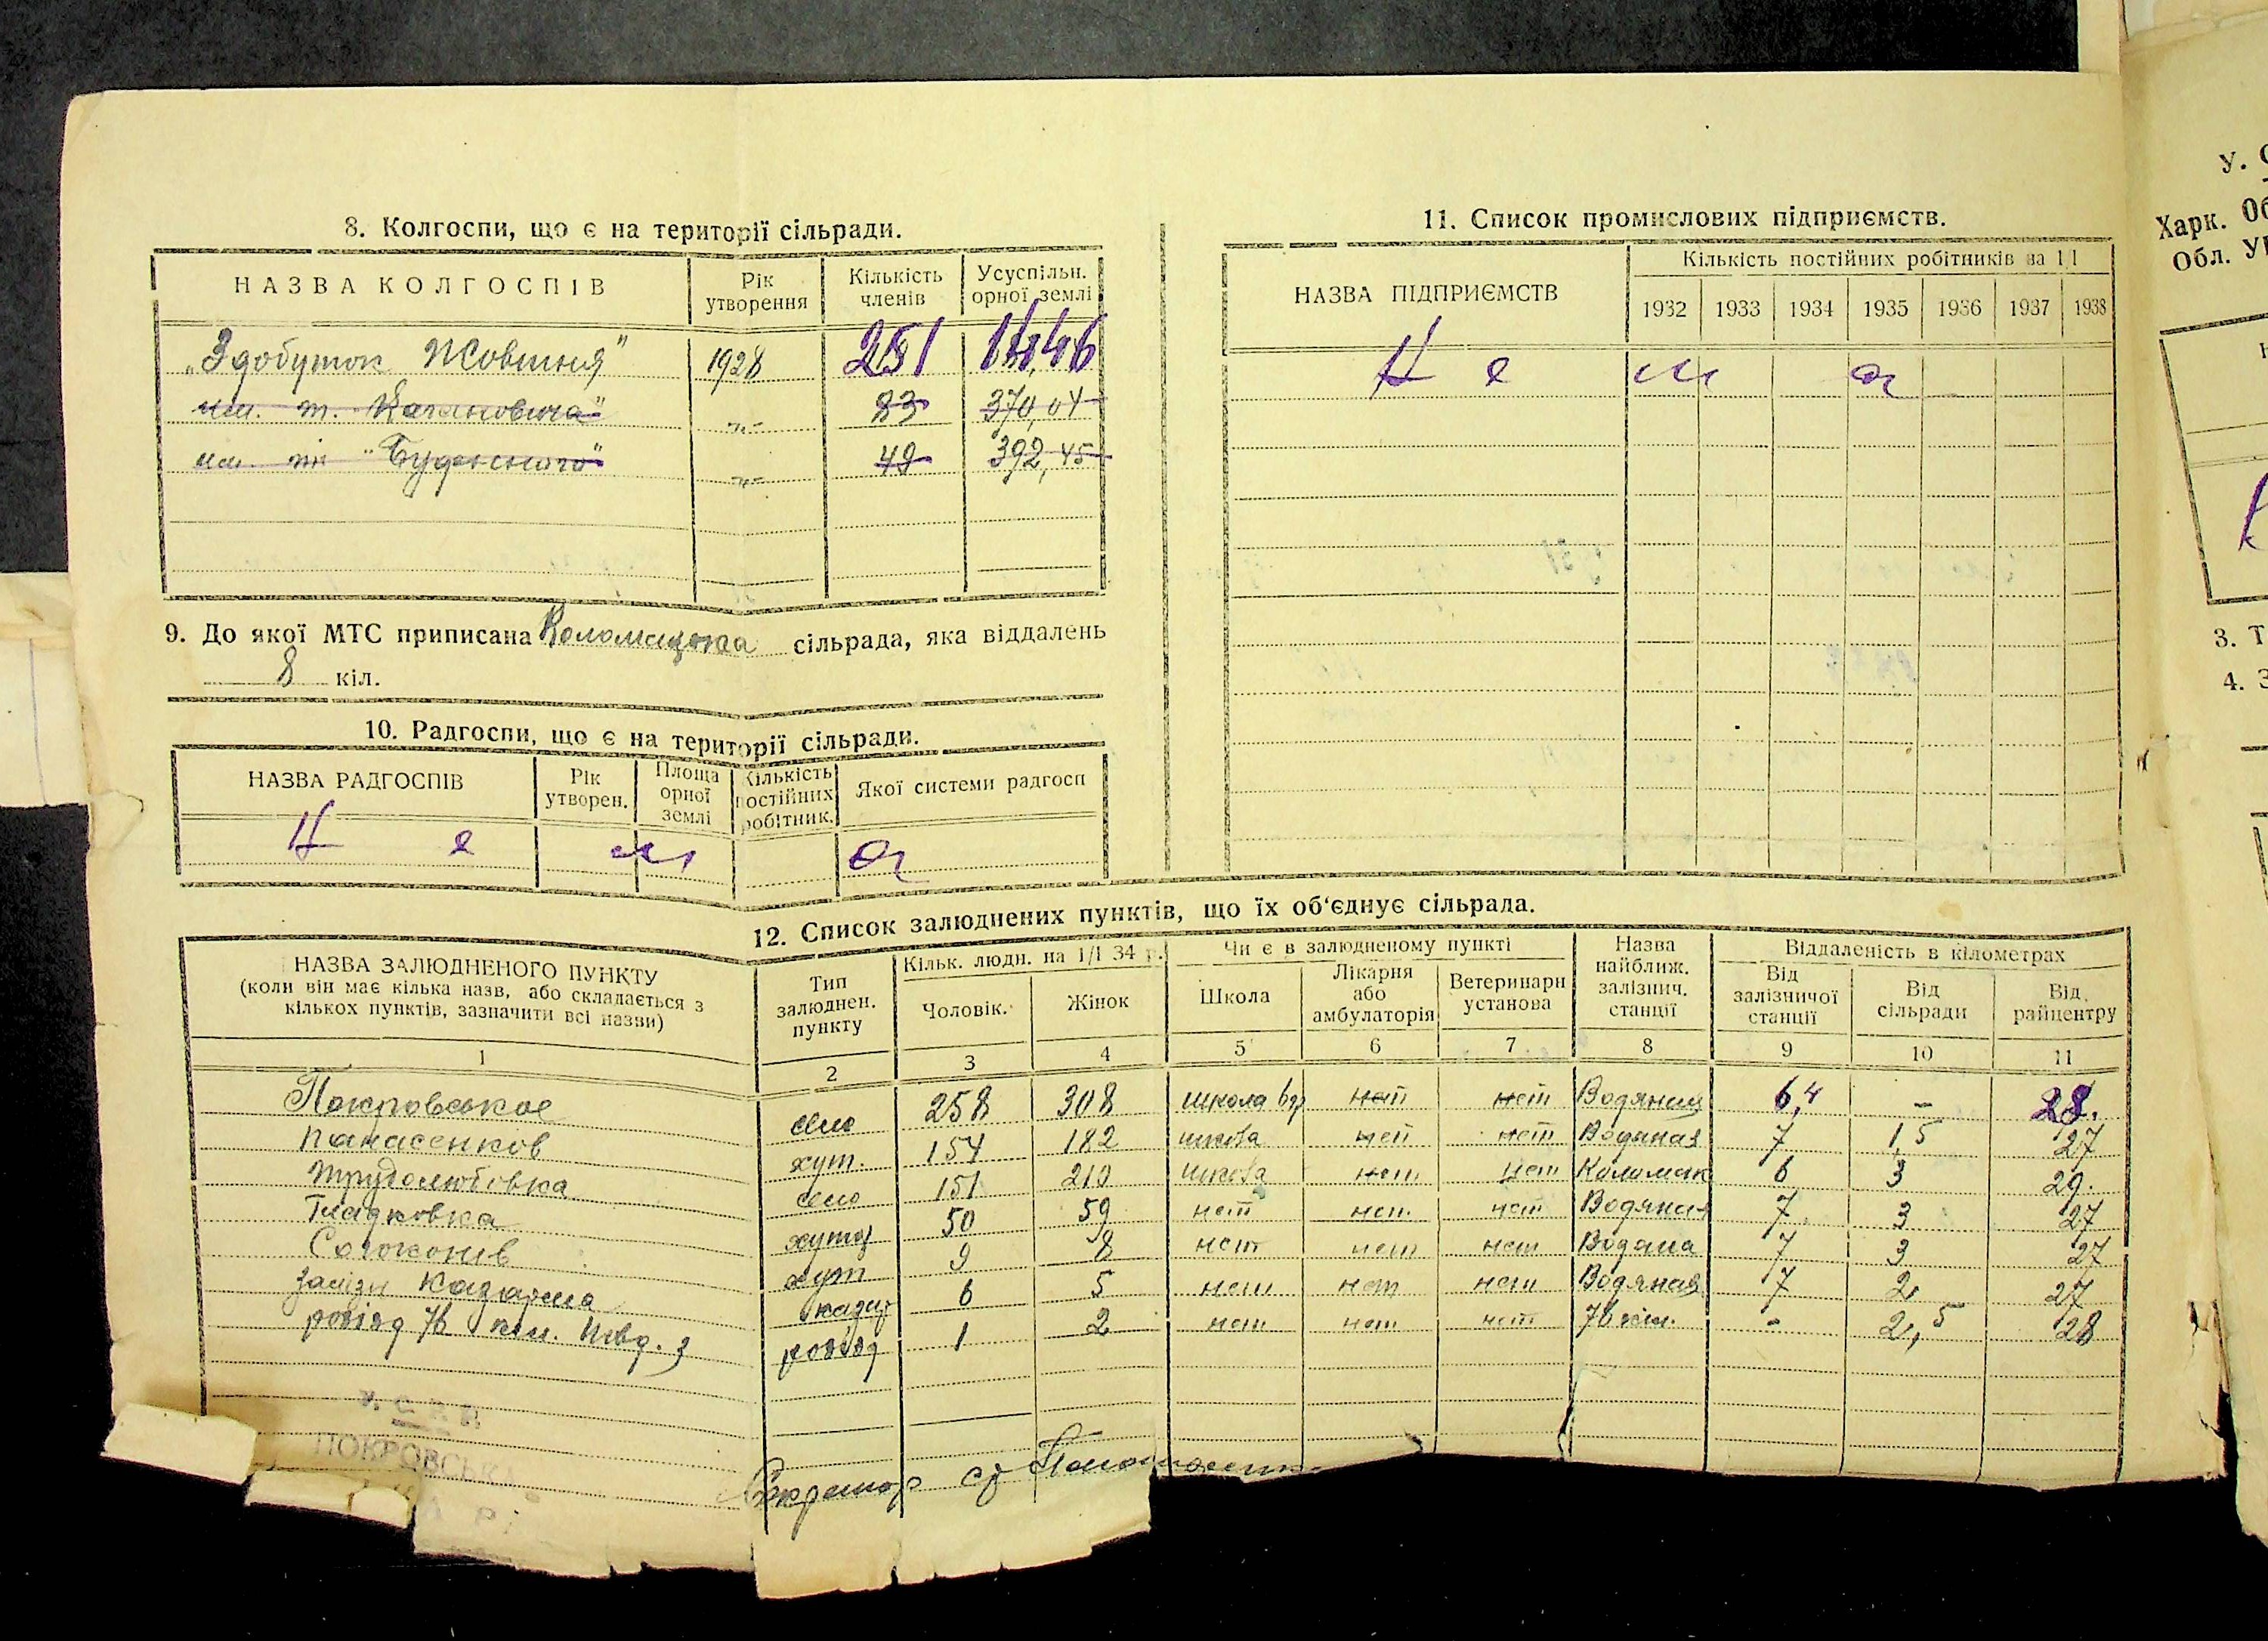 8. Колгоспи, що є на території сільради.
НАЗВА КОЛГОСПІВ Рік утворення Кількість членів Усуспільн. орної землі
„Здобуток Жовтня" 1928 251
им. т. Кагановича" -„- 83 370,04
им. тн "Буденного" -„- 49 392,45
9. До якої МТС приписана Коломацька сільрада, яка віддалень
8 кіл.
10. Радгоспи, що є на території сільради.
НАЗВА РАДГОСПІВ Рік утворен. Площа орної землі Кількість постійних робітник. Якої системи радгосп
Н е м а
11. Список промислових підприємств.
НАЗВА ПІДПРИЄМСТВ Кількість постійних робітників на 1/I
1932 1933 1934 1935 1936 1937 1938
Н е м а
12. Список залюднених пунктів, що їх об'єднує сільрада.
НАЗВА ЗАЛЮДНЕНОГО ПУНКТУ
(коли він має кілька назв, або складається з
кількох пунктів, зазначити всі назви)
Тип залюднен. пункту
Кільк. людн. на 1/I 34 р.
Чоловік. Жінок
Чи є в залюдненому пункті
Школа Лікарня або амбулаторія Ветеринарн установа
Назва найближ. залізнич. станції
Віддаленість в кілометрах
Від залізничої станції Від сільради Від райцентру
1 2 3 4 5 6 7 8 9 10 11
Покровськое село 258 308 школа нет нет Водяная 6,4 - 28.
Панасенков хут. 154 182 школа нет нет Водяная 7 1,5 27
Трудолюбовка село 151 213 школа нет нет Коломак 6 3 29.
Гладковка хутор 50 59 нет нет нет Водяная 7 3 27
Согоконів хут 9 8 нет нет нет Водяна 7 3 27
Залізн казарма казар 6 5 нет нет нет Водяная 7 2 27
розїзд 76 клм. Півд. з розїзд 1 2 нет нет нет 76 клм. - 2,5 28
У.С.Р.Р.
ПОКРОВСЬК
Секретар с/р
У. С
Харк. Об
Обл. У
3. Т
4. З